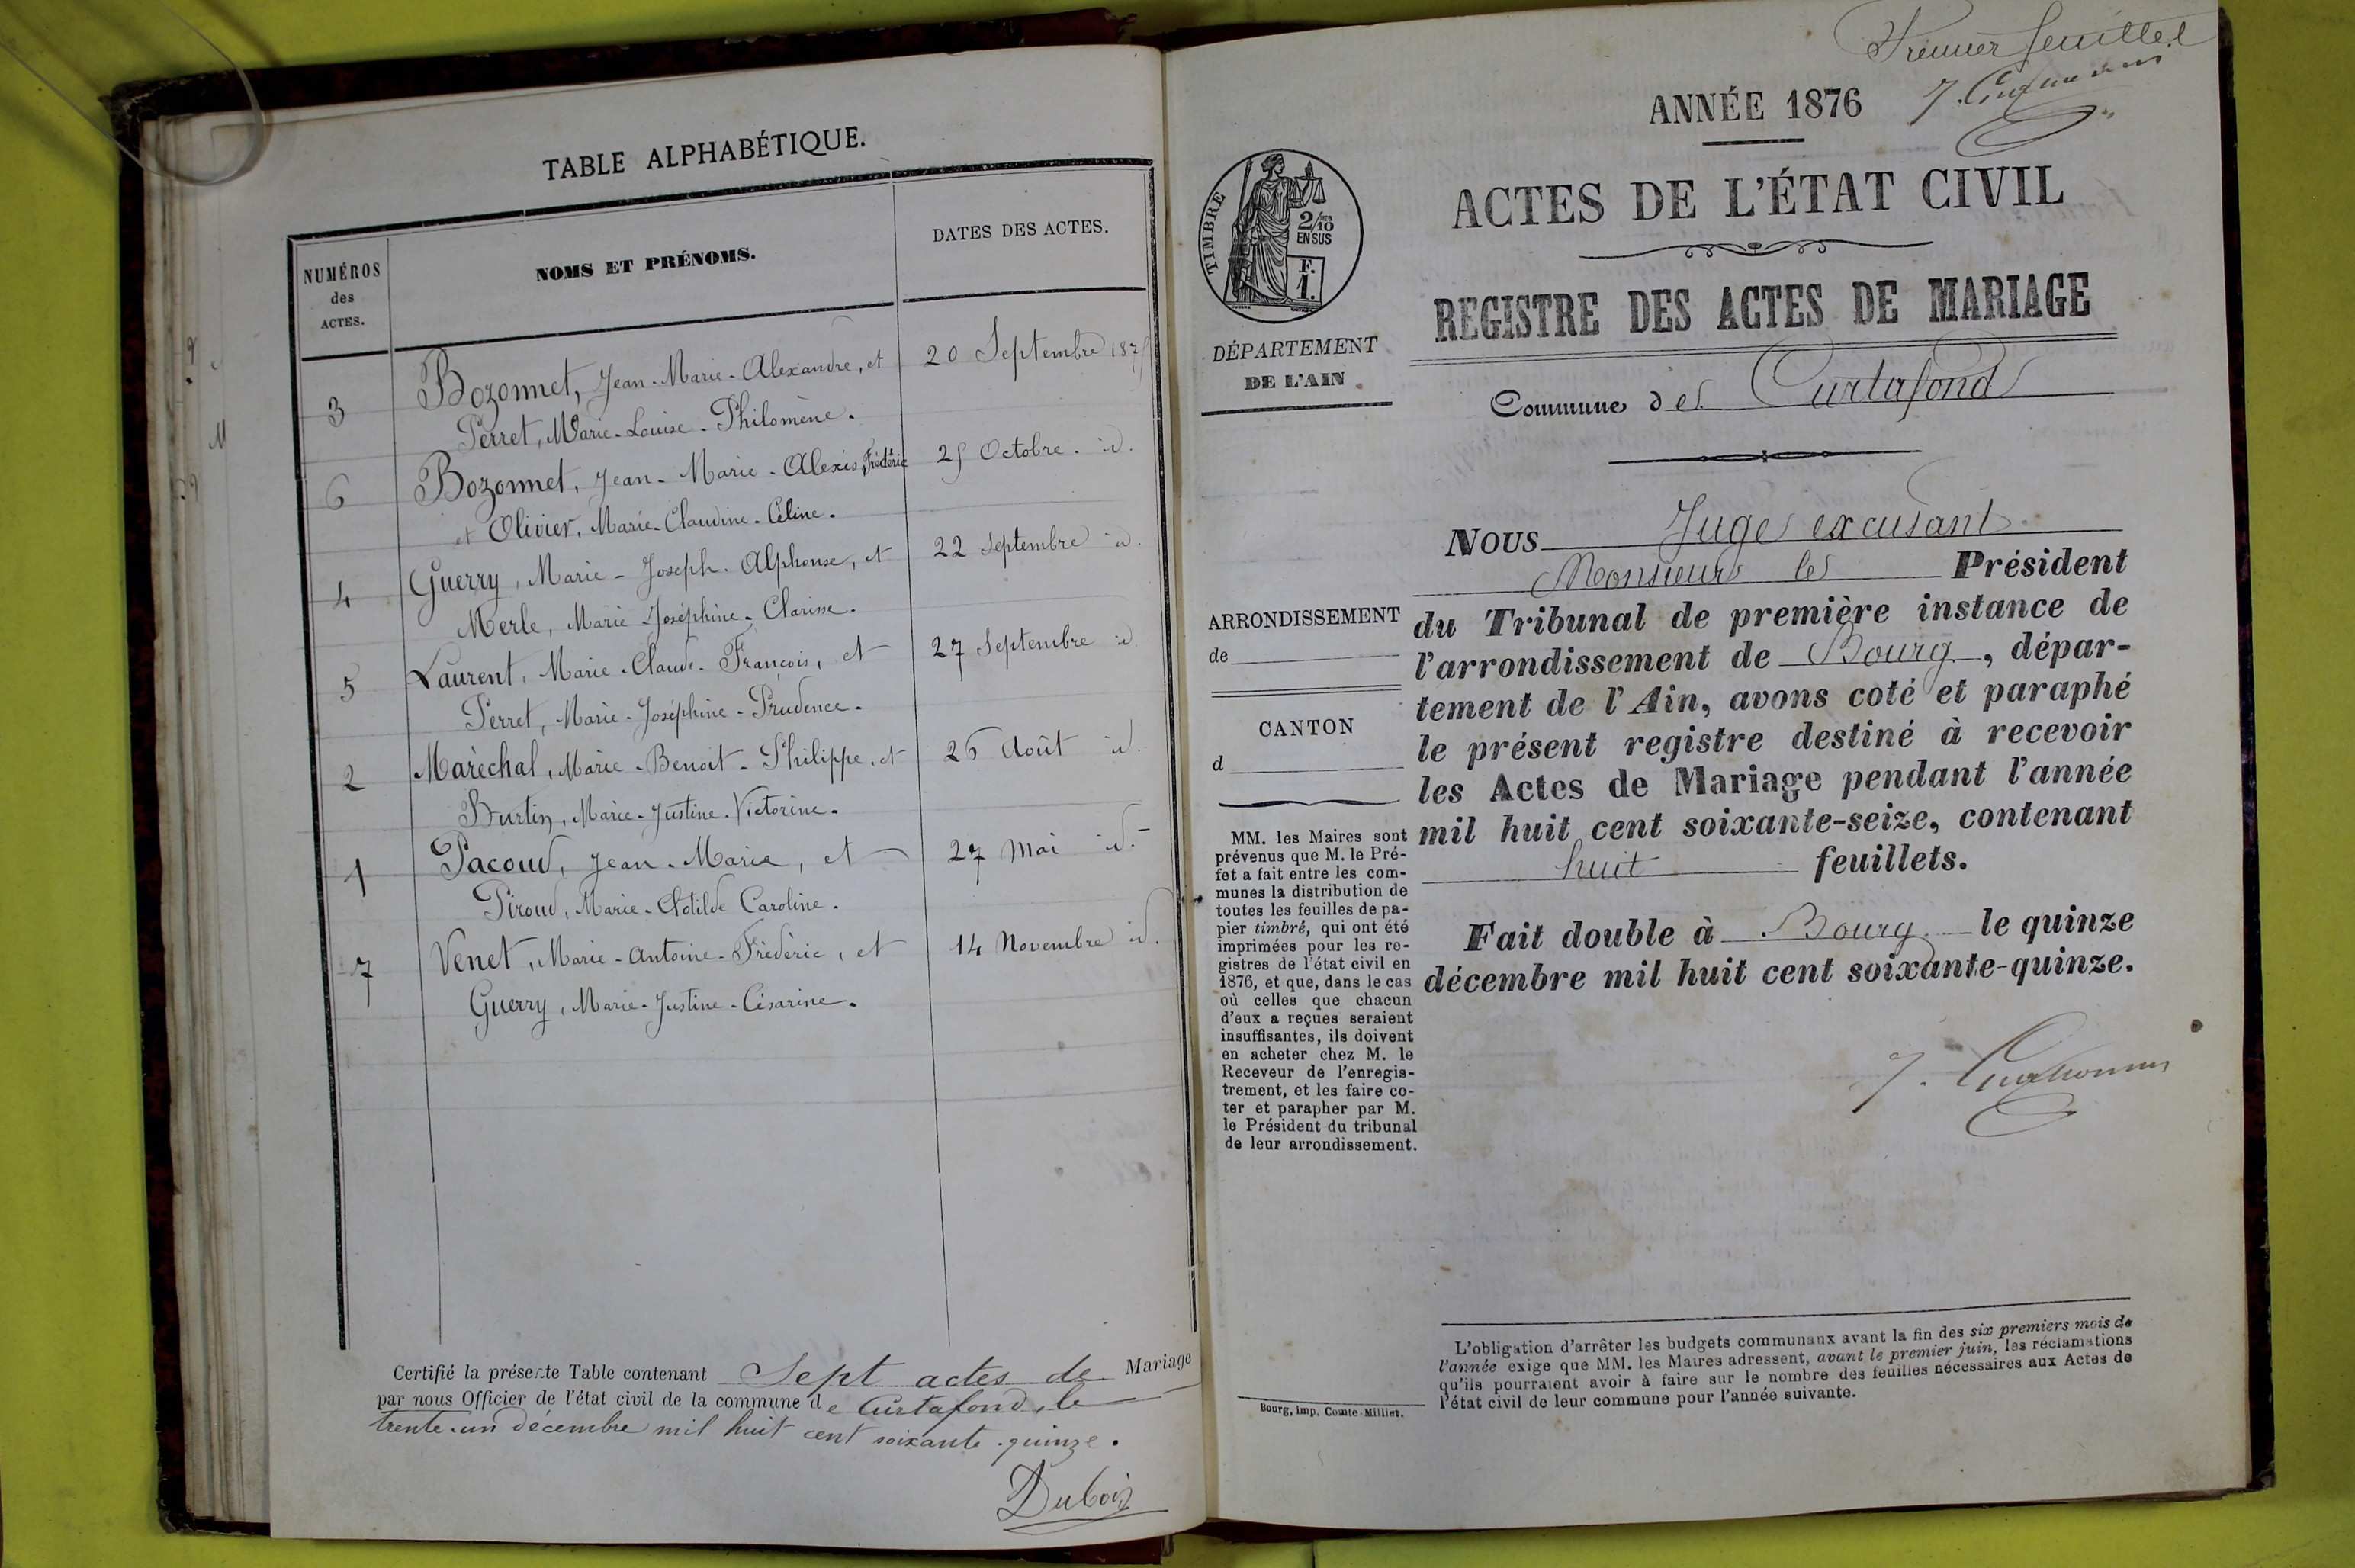 TABLE ALPHABÉTIQUE.
NUMÉROS
des
ACTES.
NOMS ET PRÉNOMS.
DATES DES ACTES.
3 Bozonnet, Jean-Marie-Alexandre, et 20 Septembre 1875
Perret, Marie-Louise-Philomène.
6 Bozonnet, Jean-Marie-Alexis, Frédéric 25 Octobre. id.
et Olivier, Marie-Claudine-Céline.
4 Guerry, Marie-Joseph-Alphonse, et 22 Septembre id.
Merle, Marie Joséphine-Clarisse.
5 Laurent, Marie-Claude-François, et 27 Septembre id.
Perret, Marie-Joséphine-Prudence.
2 Maréchal, Marie-Benoit-Philippe, et 26 Août id.
Burtin, Marie-Justine-Victorine.
1 Pacoud, Jean-Marie, et 27 Mai id.
Piroud, Marie-Clotilde Caroline.
7 Venet, Marie-Antoine-Frédéric, et 14 Novembre id.
Guerry, Marie-Justine-Césarine.
Certifié la présente Table contenant Sept actes de Mariage
par nous Officier de l'état civil de la commune de Curtafond, le
trente-un décembre mil huit cent soixante-quinze.
Dubois
Premier feuillet
ANNÉE 1876
TIMBRE
2/10
EN SUS
F.
1.
ACTES DE L'ÉTAT CIVIL
REGISTRE DES ACTES DE MARIAGE
DÉPARTEMENT
DE L'AIN
Commune de Curtafond
NOUS Juge excusant
Monsieur le Président
du Tribunal de première instance de
l'arrondissement de Bourg, dépar-
tement de l'Ain, avons coté et paraphé
le présent registre destiné à recevoir
les Actes de Mariage pendant l'année
mil huit cent soixante-seize, contenant
huit feuillets.
Fait double à Bourg le quinze
décembre mil huit cent soixante-quinze.
ARRONDISSEMENT
de
CANTON
d
MM. les Maires sont
prévenus que M. le Pré-
fet a fait entre les com-
munes la distribution de
toutes les feuilles de pa-
pier timbré, qui ont été
imprimées pour les re-
gistres de l'état civil en
1876, et que, dans le cas
où celles que chacun
d'eux a reçues seraient
insuffisantes, ils doivent
en acheter chez M. le
Receveur de l'enregis-
trement, et les faire co-
ter et parapher par M.
le Président du tribunal
de leur arrondissement.
L'obligation d'arrêter les budgets communaux avant la fin des six premiers mois de
l'année exige que MM. les Maires adressent, avant le premier juin, les réclamations
qu'ils pourraient avoir à faire sur le nombre des feuilles nécessaires aux Actes de
l'état civil de leur commune pour l'année suivante.
Bourg, imp. Comte-Milliet.